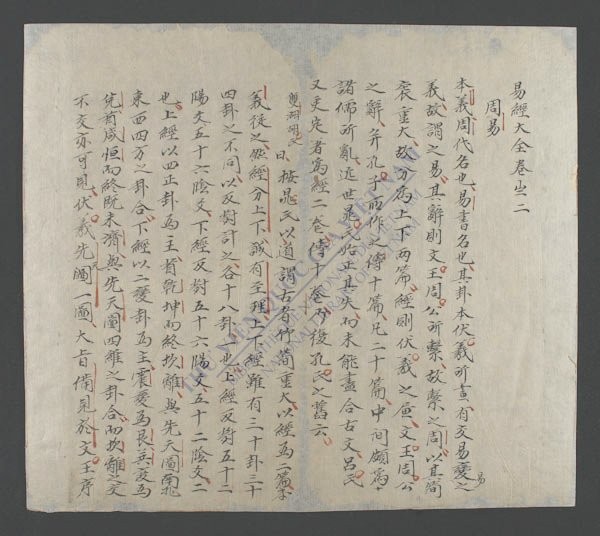 易經大全卷之二
周易
本義周代名也易書名也其卦本伏羲所畫有交易變易之
義故謂之易其辭則文王周公所繫故繫之周以其簡
袠重大故分為上下兩篇經則伏羲之畫文王周公
之辭并孔子所作之傳十篇凡十二篇中間頗為
諸儒所亂近世晁氏始正其失而未能盡合古文呂氏
又更定著為經二卷傳十卷乃復孔氏之舊云
雙湖胡氏曰按晁氏以道謂古者竹簡重大以經為二篇
義後之 經分上下誠有至理上下經雖有三十卦三十
四卦之不同以反對計之各十八卦也上經反對五十二
陽文五十六陰文下經反對五十六陽文五十二陰文
也上經以四正卦為主首乾坤而終坎離與先天圖南北
東西四方之卦合下經以二變卦為主震變為艮兌變為
先首咸恒而終既未濟與先天圖四維之卦合而坎離之交
不交亦可見伏羲先圖一圖大旨備見於文王序